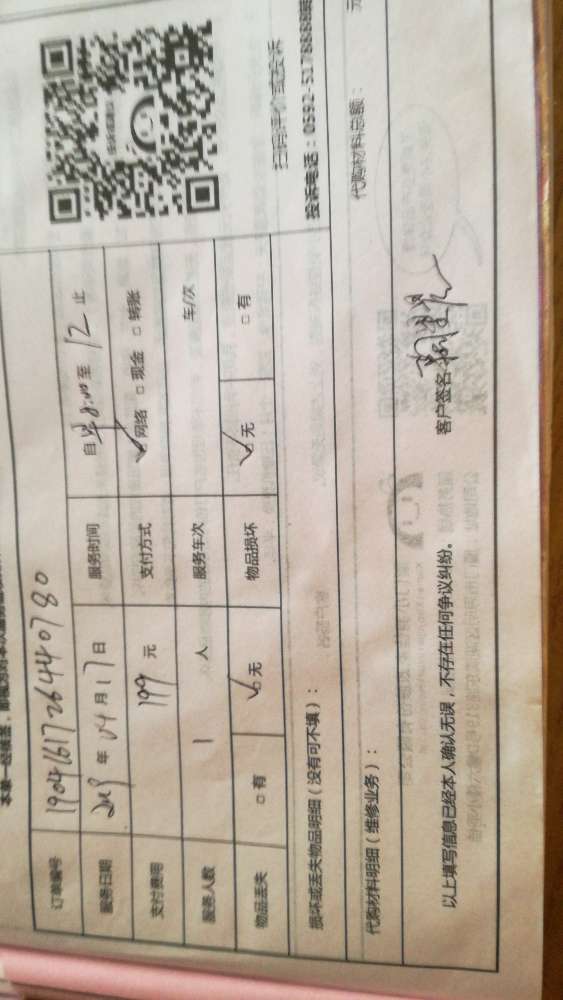 订单编号 1904161726440780
服务日期 2019 年 04 月 17 日 服务时间 自 8:00 至 12 止
支付费用 199 元 支付方式 ☑网络 □现金 □转账
服务人数 1 人 服务车次 车/次
物品丢失 □有 ☑无 物品损坏 ☑无 □有
扫码评价或投诉
投诉电话：0592-5178888
损坏或丢失物品明细（没有可不填）：
代购材料明细（维修业务）： 代购材料总额： 元
以上填写信息已经本人确认无误，不存在任何争议纠纷。 客户签名